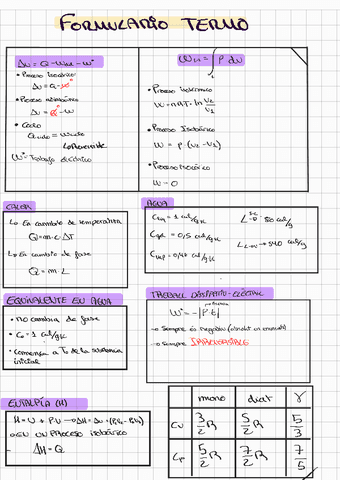 FORMULARIO TERMO
ΔU = Q - W
• Proceso isocórico
• Proceso adiabático
• Ciclo
Qciclo = Wciclo
W* = Trabajo eléctrico
∫ P dV
• Proceso isotérmico
W = nRT · ln V2/V1
• Proceso Isobárico
W = P · (V2 - V1)
• Proceso isocórico
W = 0
CALOR
↳ En cambio de temperatura
Q = m · c · ΔT
↳ En cambio de fase
Q = m · L
AGUA
= 1 cal/gK
= 0,5 cal/gK
80 cal/g
540 cal/g
EQUIVALENTE EN AGUA
• no cambia de fase
• = 1 cal/gK
• Comienza a T0 de la sustancia
inicial
TREBALL DISSIPATIU-ELÈCTRIC
W* = -|P·t|
→ Siempre es negativo
→ Siempre IRREVERSIBLE
ENTALPÍA (H)
H = U + P·V → ΔH = ΔU + (P2V2 - P1V1)
→ EN UN PROCESO isobárico
ΔH = Q
mono diat γ
Cv 3/2 R 5/2 R 5/3
Cp 5/2 R 7/2 R 7/5